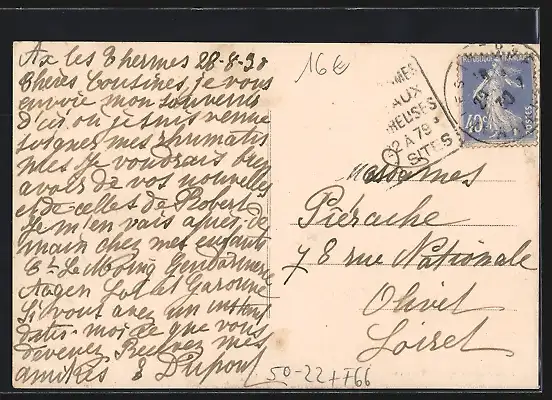 Ax les Thermes 28-8-30
Chères Cousines, je vous
envoie mon souvenir
d'ici où je suis venue
soigner mes rhumatis
mes Je voudrais bien
avoir de vos nouvelles
et de celles de Robert
Je m'en vais après-de
main chez mes enfants
Ct Le Moing Gendarmerie
Agen Lot et Garonne
Si vous avez un instant
dites-moi ce que vous
devenez Recevez mes
amitiés E Dupont
16€
AUX
REUSES
22 A 79°
SITES
REPUBLIQUE FRANÇAISE
40c
POSTES
Mesdames
Piérache
78 rue Nationale
Olivet
Loiret
50-22+F66